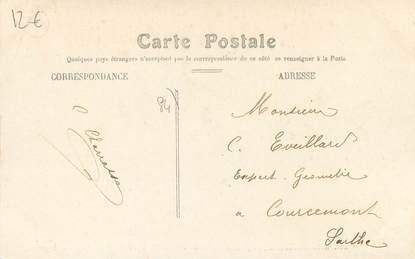 12 €
Carte Postale
Quelques pays étrangers n'acceptent pas la correspondance de ce côté se renseigner à la Poste
CORRESPONDANCE
ADRESSE
84
Monsieur
C. Eveillard
Expert-Geometre
a Courcemont
Sarthe